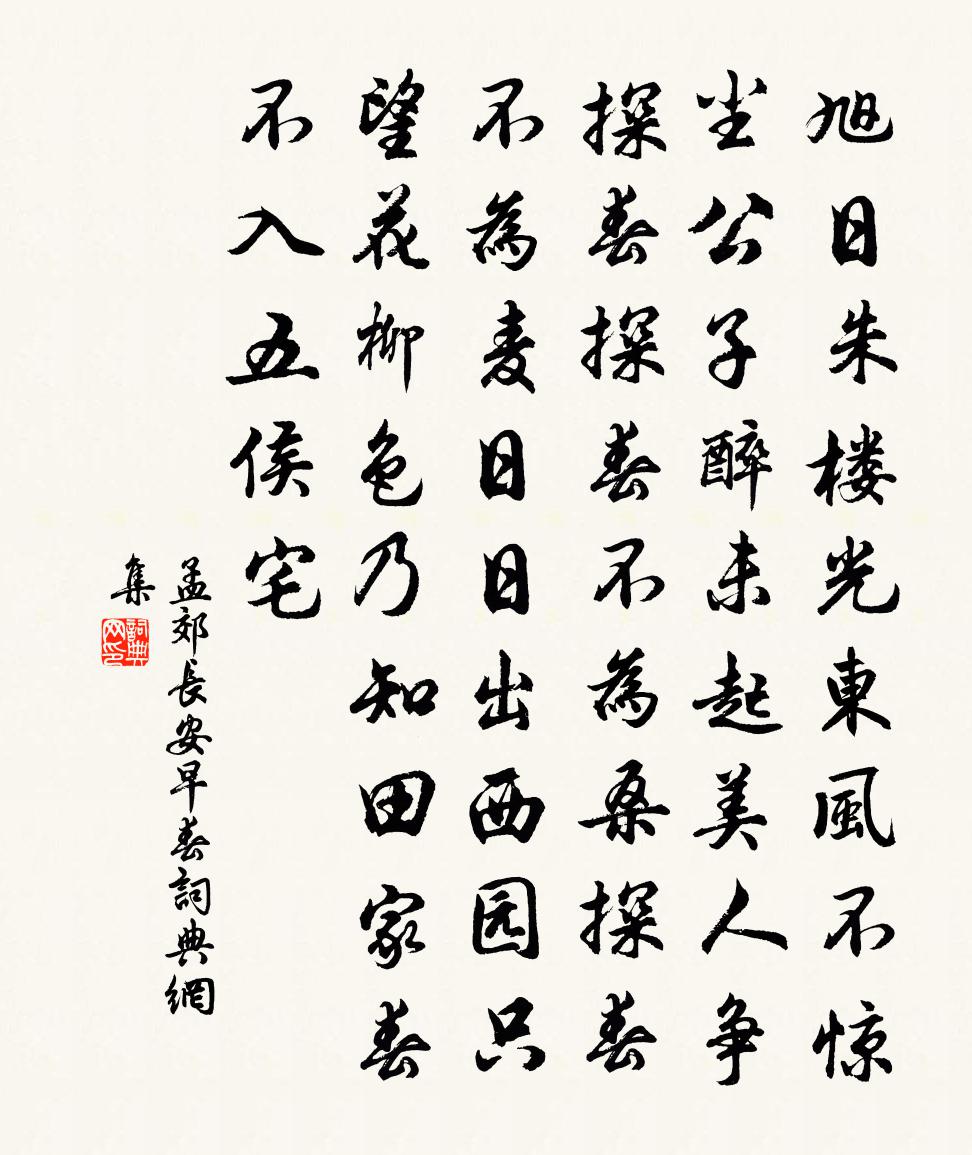 旭日朱楼光東風不惊
尘公子醉未起美人争
探春探春不為桑探春
不為麦日日出西园只
望花柳色乃知田家春
不入五侯宅
孟郊長安早春詞典網
集
詞典网印